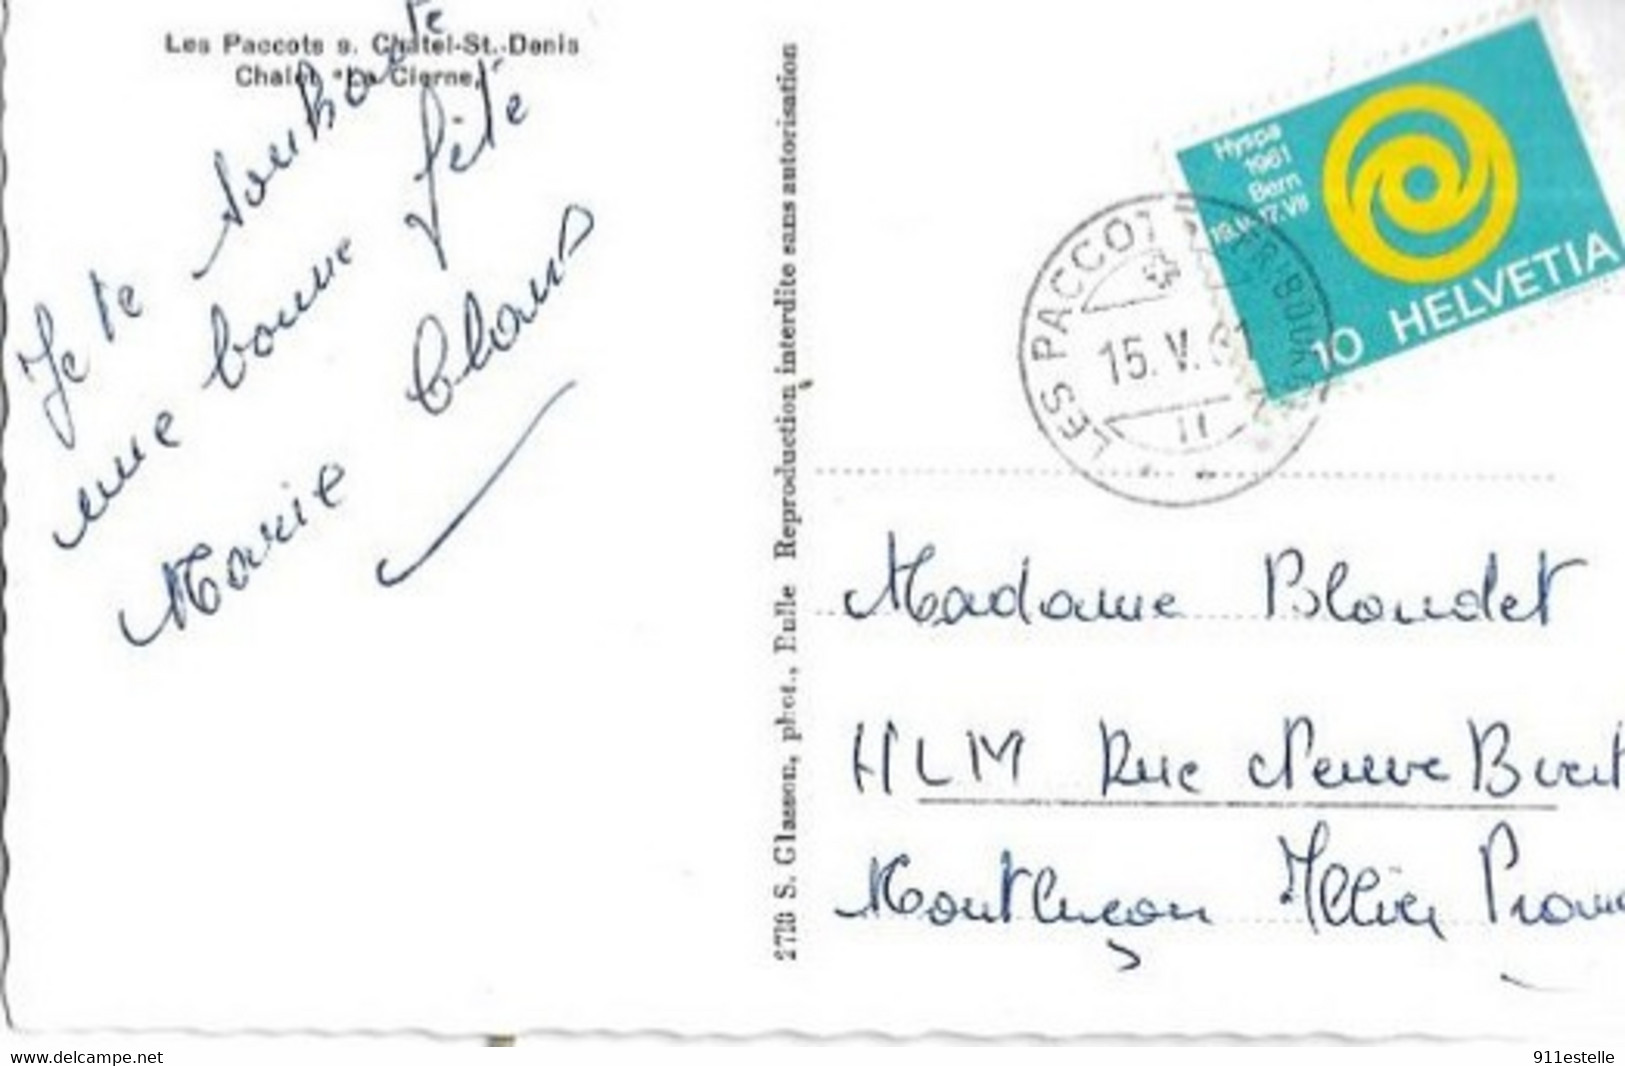 Les Paccots s. Châtel-St.-Denis
Chalet "La Cierne"
Je te souhaite
une bonne fête
Marie
2710 S. Glasson, phot., Bulle Reproduction interdite sans autorisation
Hyspa
1961
Bern
17.VII
10 HELVETIA
LES PACCOTS
FRIBOURG
15. V. 61
Madame Blondet
HLM Rue Neuve
Montluçon Allier
delcampe.net
911estelle